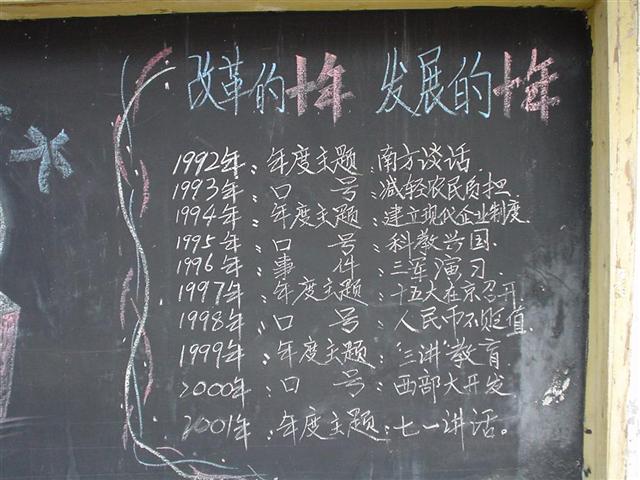 改革的十年 发展的十年
1992年：年度主题：南方谈话.
1993年：口号：减轻农民负担.
1994年：年度主题：建立现代企业制度.
1995年：口号：科教兴国.
1996年：事件：三军演习.
1997年：年度主题：十五大在京召开.
1998年：口号：人民币不贬值.
1999年：年度主题：“三讲”教育.
2000年：口号：西部大开发.
2001年：年度主题：七一讲话。